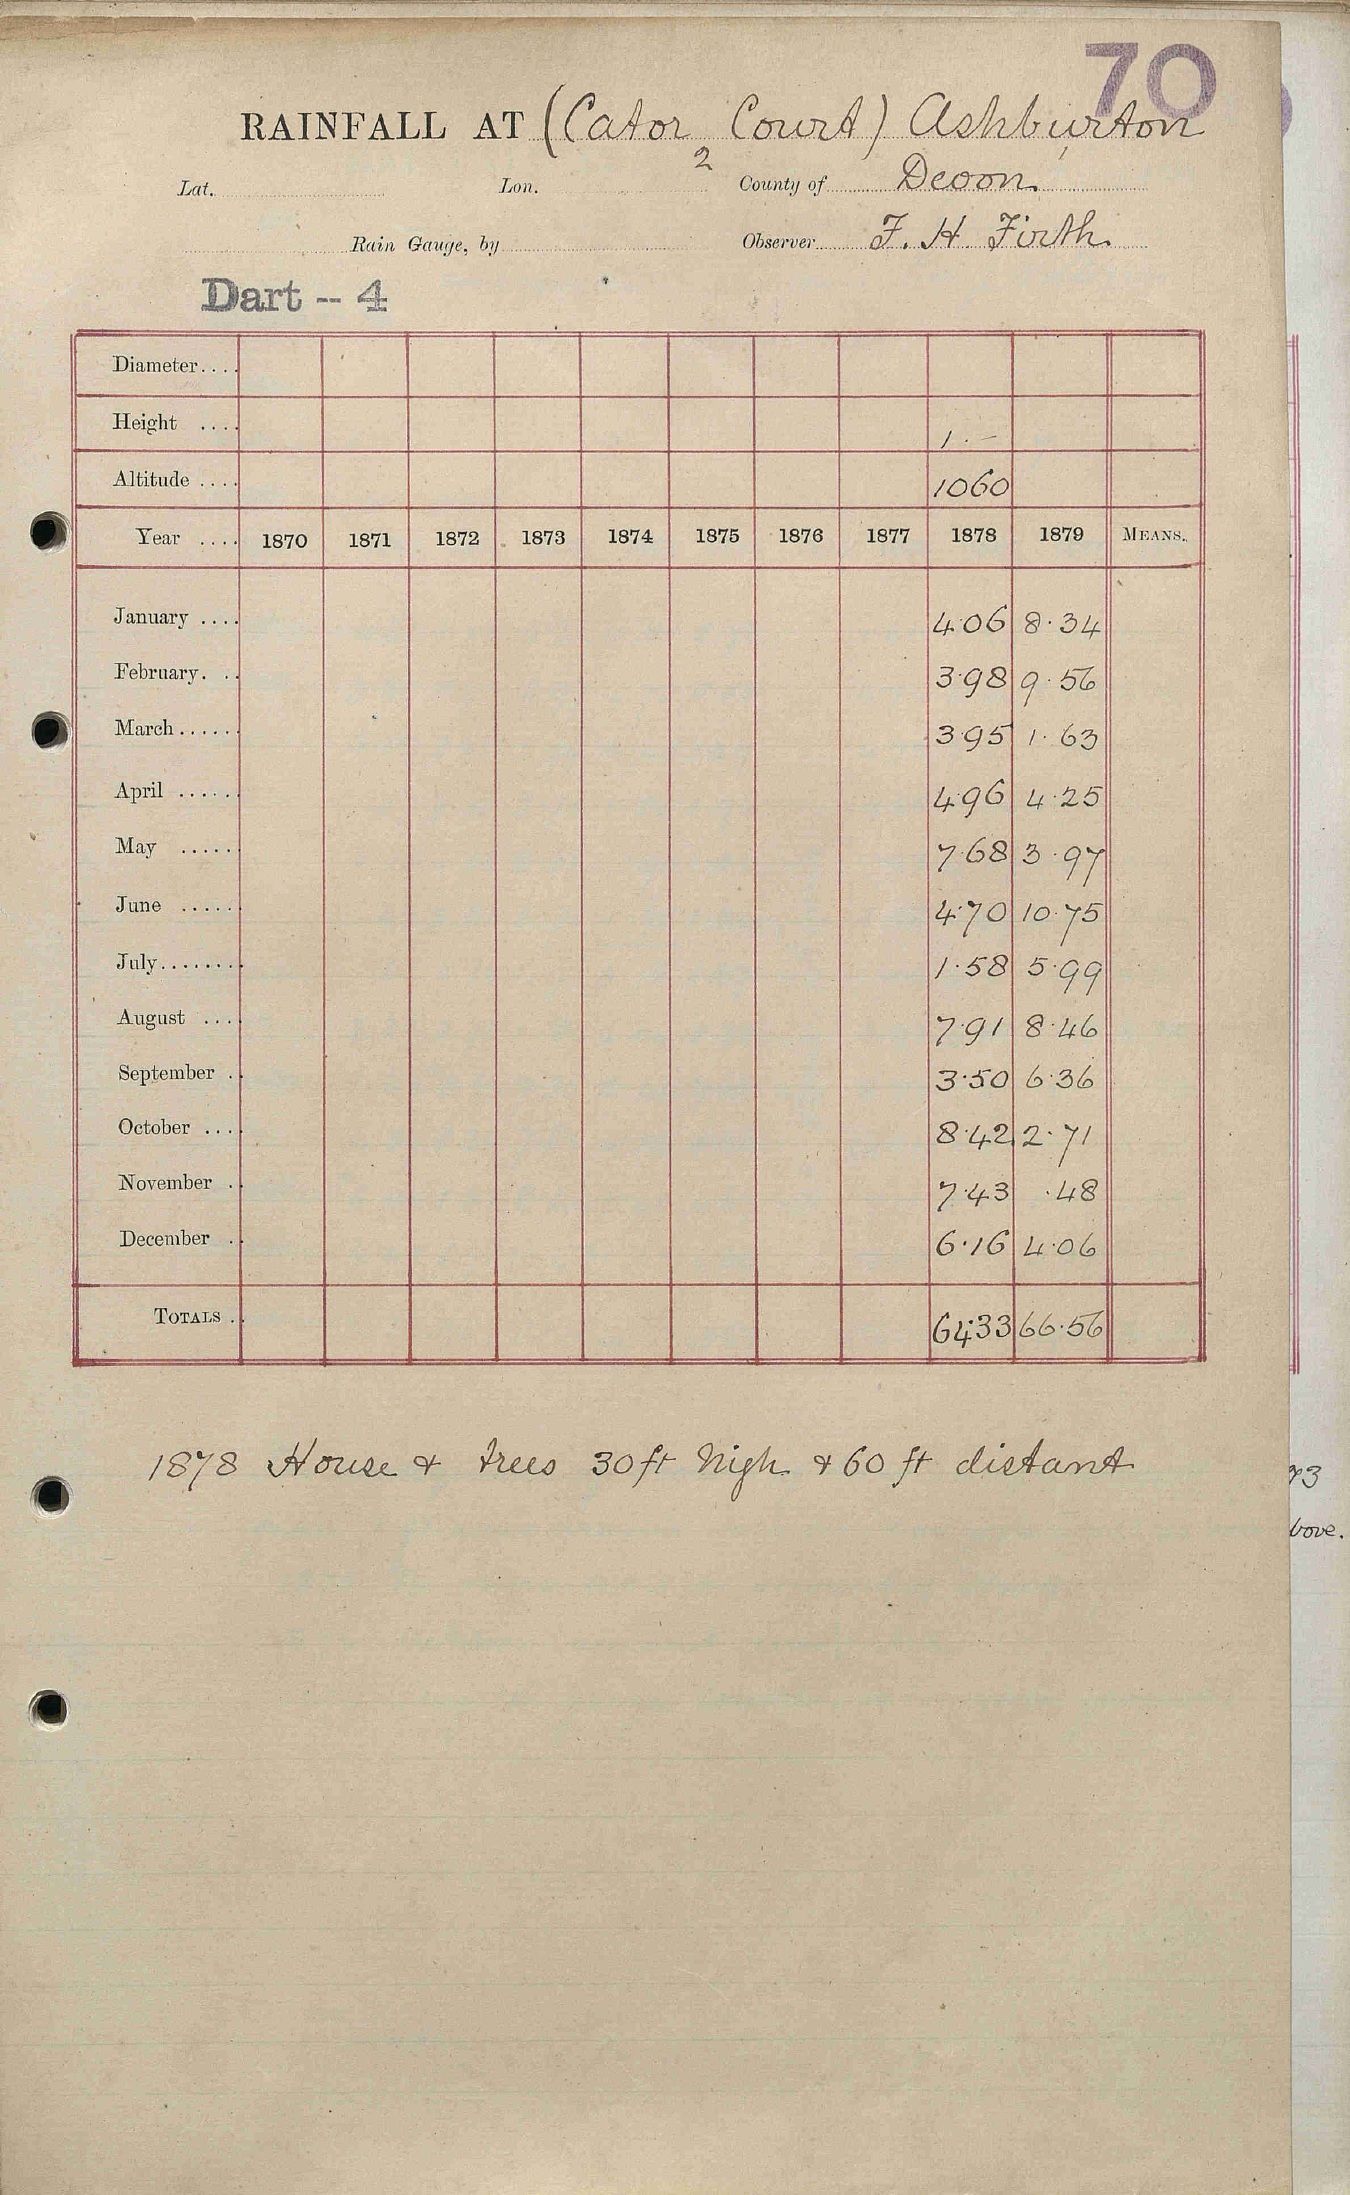 70
RAINFALL AT (Cator Court) Ashburton
2
Lat. Lon. County of Devon.
Rain Gauge, by Observer F. H. Firth.
Dart -- 4
Diameter....
Height .... 1 . —
Altitude .... 1060
Year .... 1870 1871 1872 1873 1874 1875 1876 1877 1878 1879 MEANS.
January .... 4·06 8·34
February. .. 3·98 9·56
March...... 3·95 1·63
April ...... 4·96 4·25
May ..... 7·68 3·97
June ..... 4·70 10·75
July........ 1·58 5·99
August .... 7·91 8·46
September .. 3·50 6·36
October .... 8·42 2·71
November .. 7·43 ·48
December .. 6·16 4·06
TOTALS .. 64·33 66·56
1878 House & trees 30 ft high & 60 ft distant
bove.